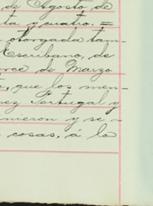 de Agosto de
ta y cuatro. =
otorgada tam-
Escribano, de
rce de Marzo
, que los men-
rez Portugal y
meron y se
cosas, á lo